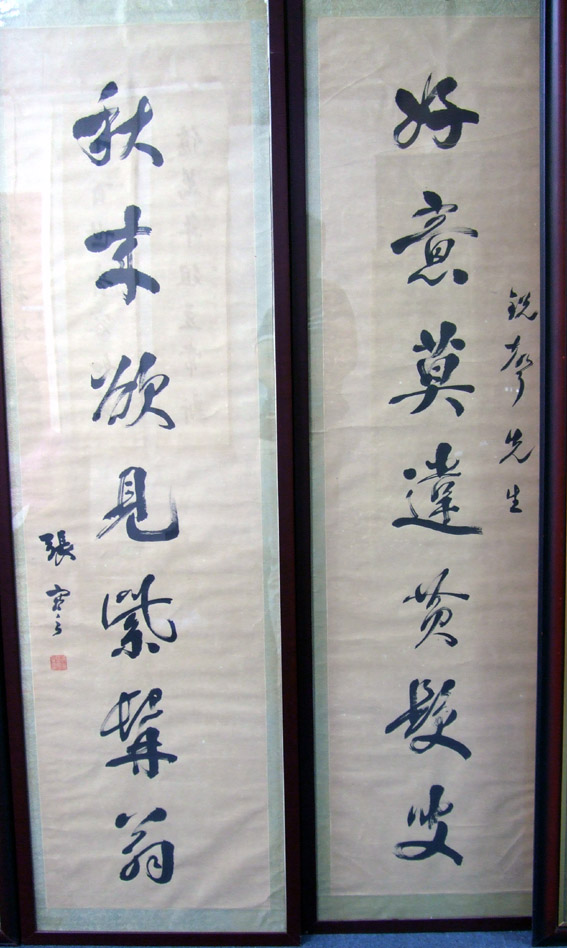 銳聲先生
好意莫違黃髮叟
秋來欲見紫髯翁
張謇